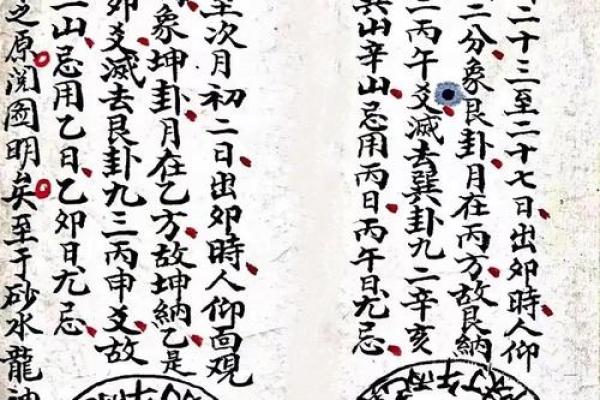 二十三至二十七日出卯時人仰
二分象艮卦月在丙方故艮納
二丙午爻滅去巽卦九二辛亥
巽山辛山忌用丙日丙午日尤忌
至次月初二日出卯時人仰面观
象坤卦月在乙方故坤納乙是
卯爻滅去艮卦九三丙申爻故
山忌用乙日乙卯日尤忌
之原閱圖明矣至于砂水龍神